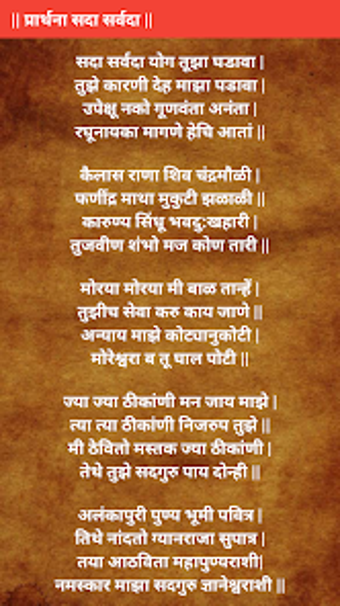 || प्रार्थना सदा सर्वदा ||
सदा सर्वदा योग तूझा घडावा |
तुझे कारणी देह माझा पडावा |
उपेक्षू नको गूणवंता अनंता |
रघूनायका मागणे हेचि आतां ||
कैलास राणा शिव चंद्रमौळी |
फणींद्र माथा मुकुटी झळाळी ||
कारुण्य सिंधू भवदु:खहारी |
तुजवीण शंभो मज कोण तारी ||
मोरया मोरया मी बाळ तान्हें |
तुझीच सेवा करु काय जाणे ||
अन्याय माझे कोट्यानुकोटी |
मोरेश्वरा व तू घाल पोटी ||
ज्या ज्या ठीकांणी मन जाय माझे |
त्या त्या ठीकांणी निजरुप तुझे ||
मी ठेवितो मस्तक ज्या ठीकांणी |
तेथे तुझे सदगुरु पाय दोन्ही ||
अलंकापुरी पुण्य भूमी पवित्र |
तिथे नांदतो ग्यानराजा सुपात्र |
तया आठविता महापुण्यराशी|
नमस्कार माझा सदगुरु ज्ञानेश्वराशी ||